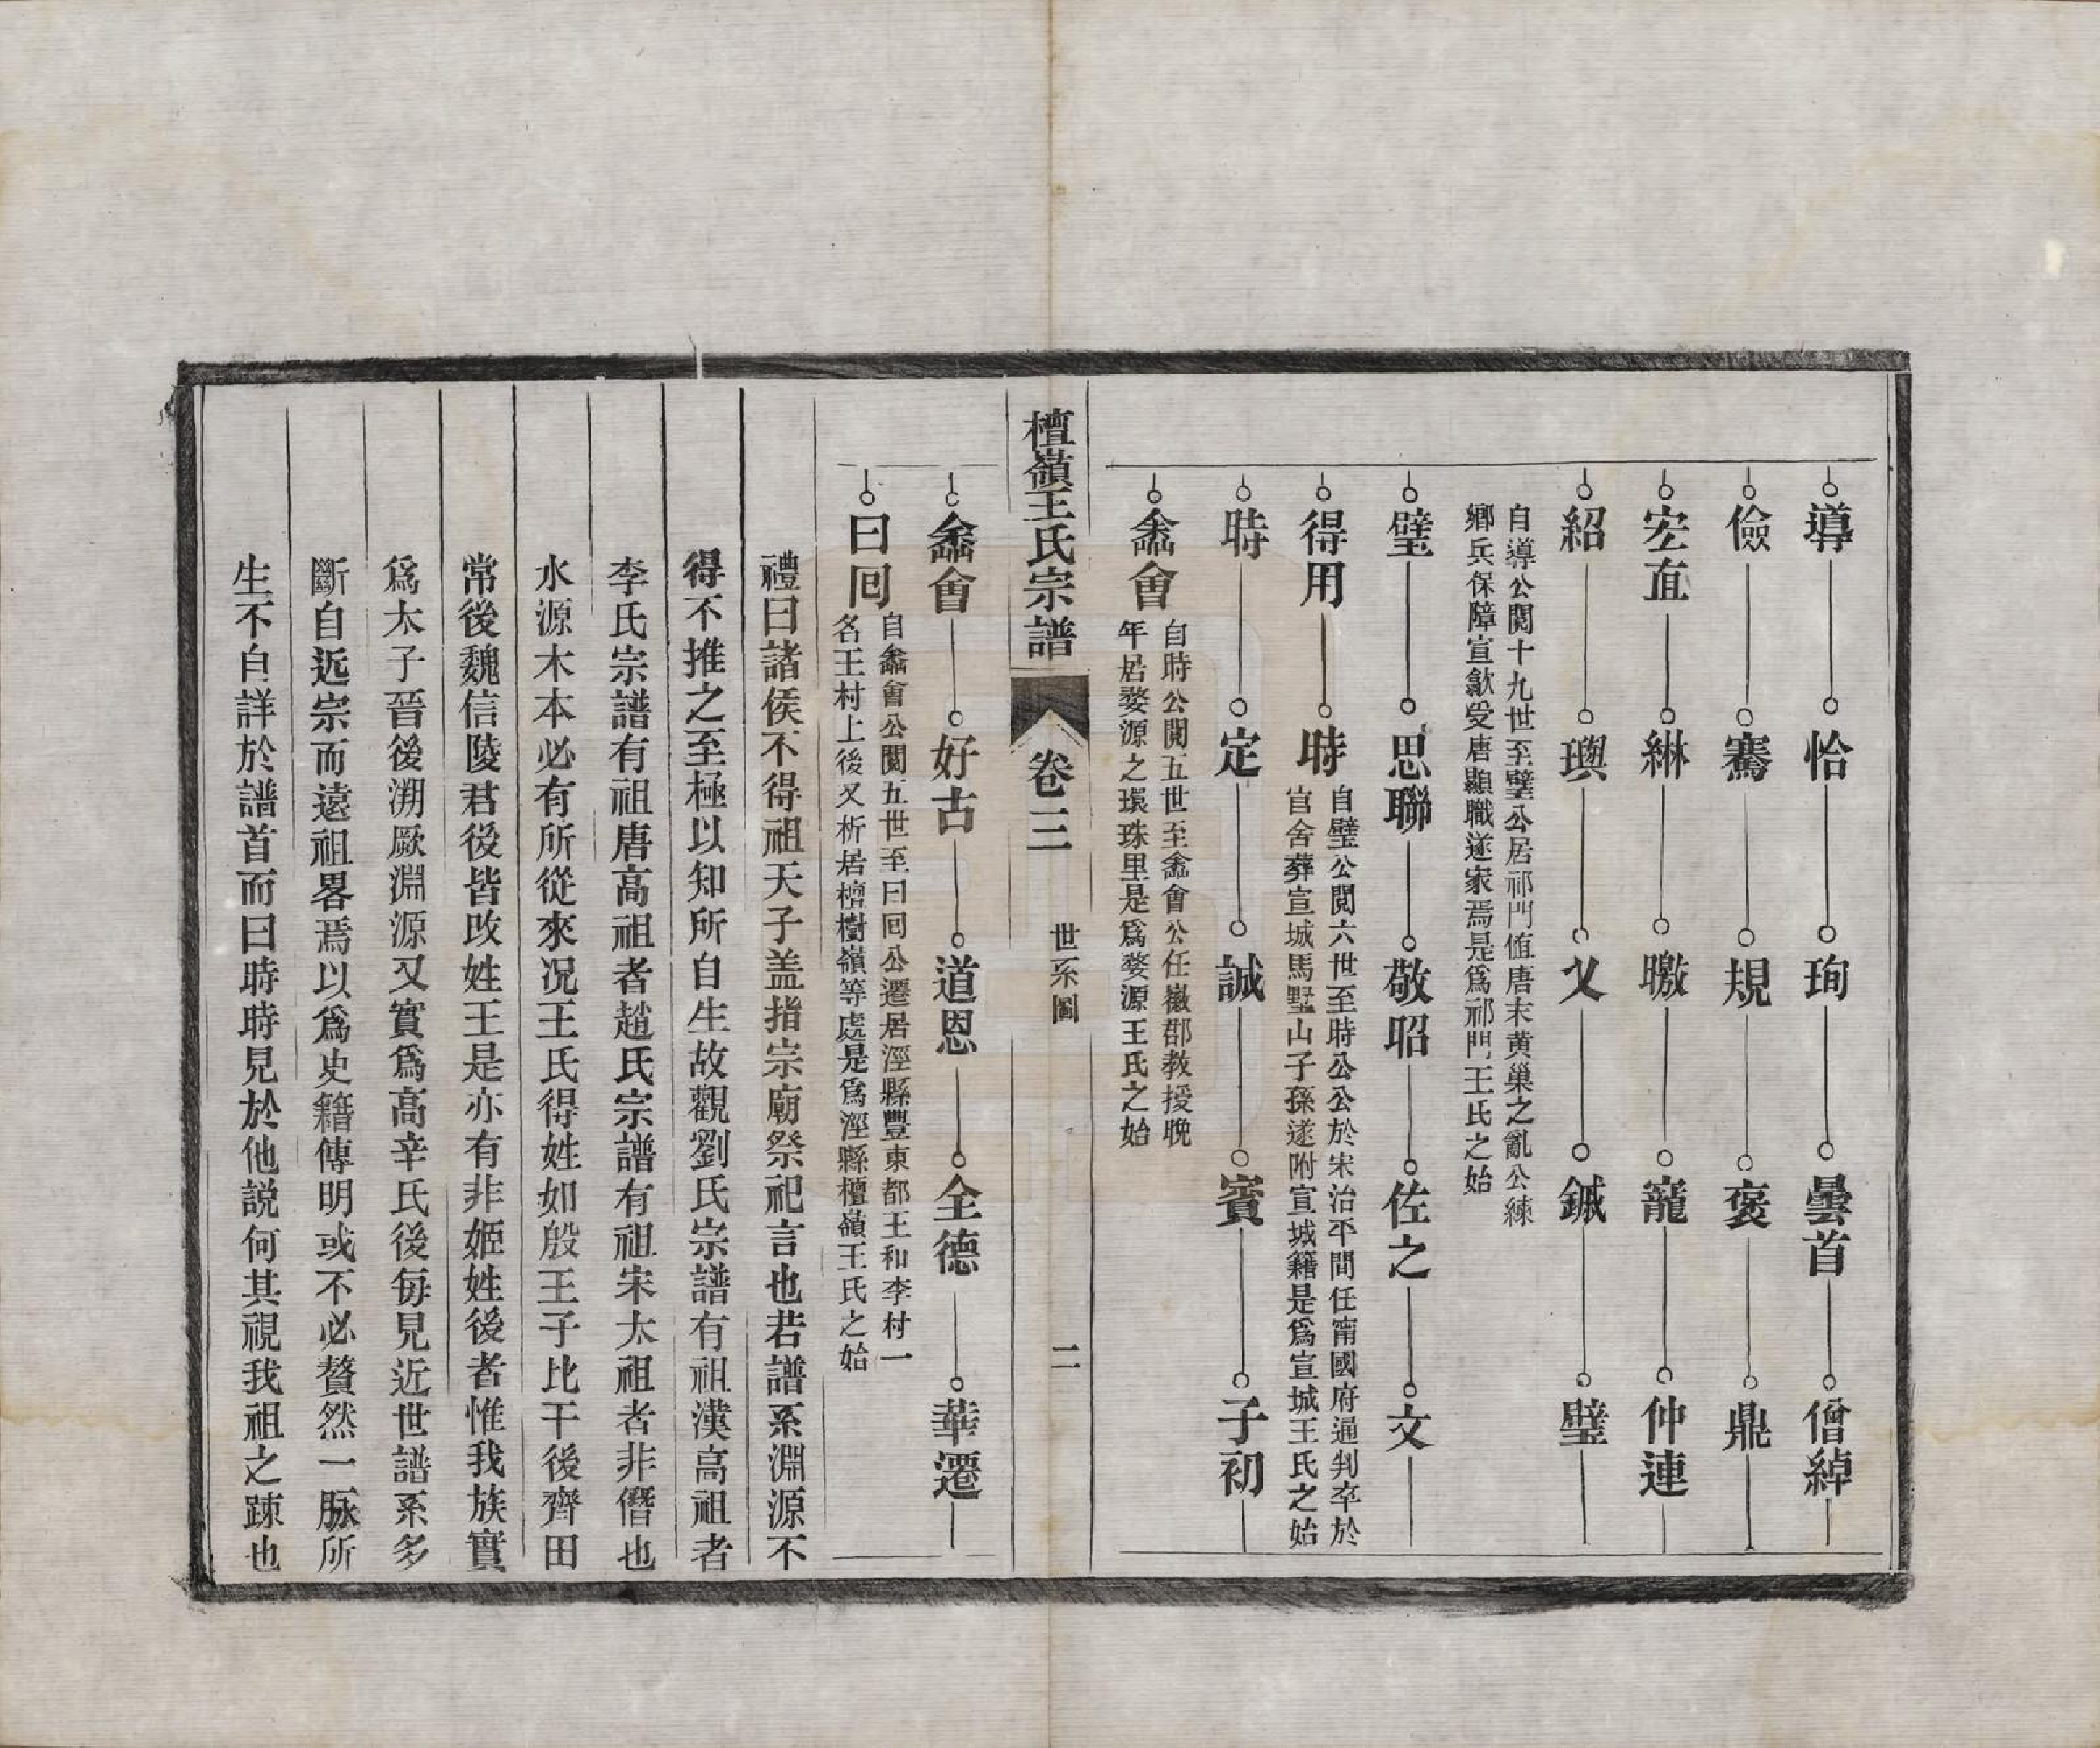 導 恰 珣 曇首 僧綽
儉 騫 規 褒 鼎
宏直 綝 曒 寵 仲連
紹 璵 乂 鍼 璧
自導公閱十九世至璧公居祁門值唐末黄巢之亂公練
鄉兵保障宣歙受唐顯職遂家焉是爲祁門王氏之始
璧 思聯 敬昭 佐之 文
得用 時
自璧公閱六世至時公公於宋治平間任甯國府通判卒於
官舍葬宣城馬墅山子孫遂附宣城籍是爲宣城王氏之始
時 定 誠 賓 子初
龠會
自時公閱五世至龠會公任徽郡教授晚
年居婺源之環珠里是爲婺源王氏之始
檀嶺王氏宗譜 卷三 世系圖 二
龠會 好古 道恩 全德 華遷
曰囘
自龠會公閱五世至曰囘公遷居涇縣豐東都王和李村一
名王村上後又析居檀樹嶺等處是爲涇縣檀嶺王氏之始
禮曰諸侯不得祖天子盖指宗廟祭祀言也若譜系淵源不
得不推之至極以知所自生故觀劉氏宗譜有祖漢高祖者
李氏宗譜有祖唐高祖者趙氏宗譜有祖宋太祖者非僭也
水源木本必有所從來况王氏得姓如殷王子比干後齊田
常後魏信陵君後皆改姓王是亦有非姬姓後者惟我族實
爲太子晉後溯厥淵源又實爲高辛氏後每見近世譜系多
斷自近宗而遠祖畧焉以爲史籍傳明或不必贅然一脉所
生不自詳於譜首而曰時時見於他説何其視我祖之踈也